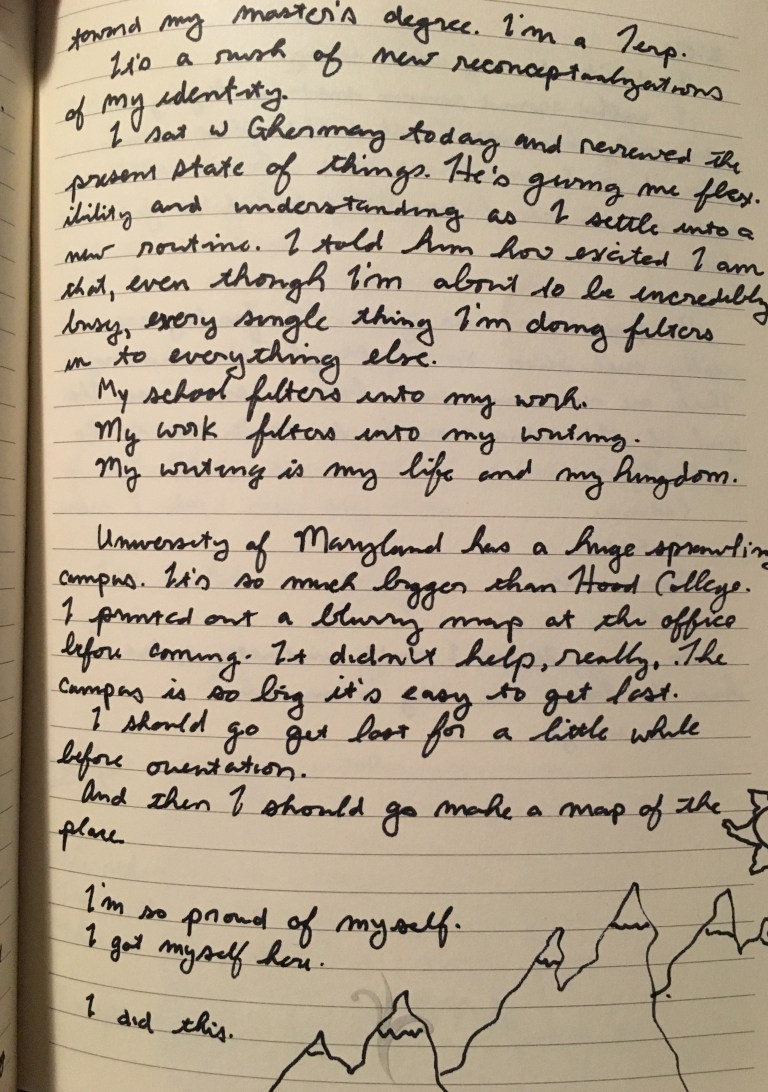 toward my master's degree. I'm a Terp.
It's a rush of new reconceptualizations
of my identity.
I sat w Ghermay today and reviewed the
present state of things. He's giving me flex-
ibility and understanding as I settle into a
new routine. I told him how excited I am
that, even though I'm about to be incredibly
busy, every single thing I'm doing filters
in to everything else.
My school filters into my work.
My work filters into my writing.
My writing is my life and my kingdom.
University of Maryland has a huge sprawlin
campus. It's so much bigger than Hood College.
I printed out a blurry map at the office
before coming. It didn't help, really. The
campus is so big it's easy to get lost.
I should go get lost for a little while
before orientation.
And then I should go make a map of the
place.
I'm so proud of myself.
I got myself here.
I did this.